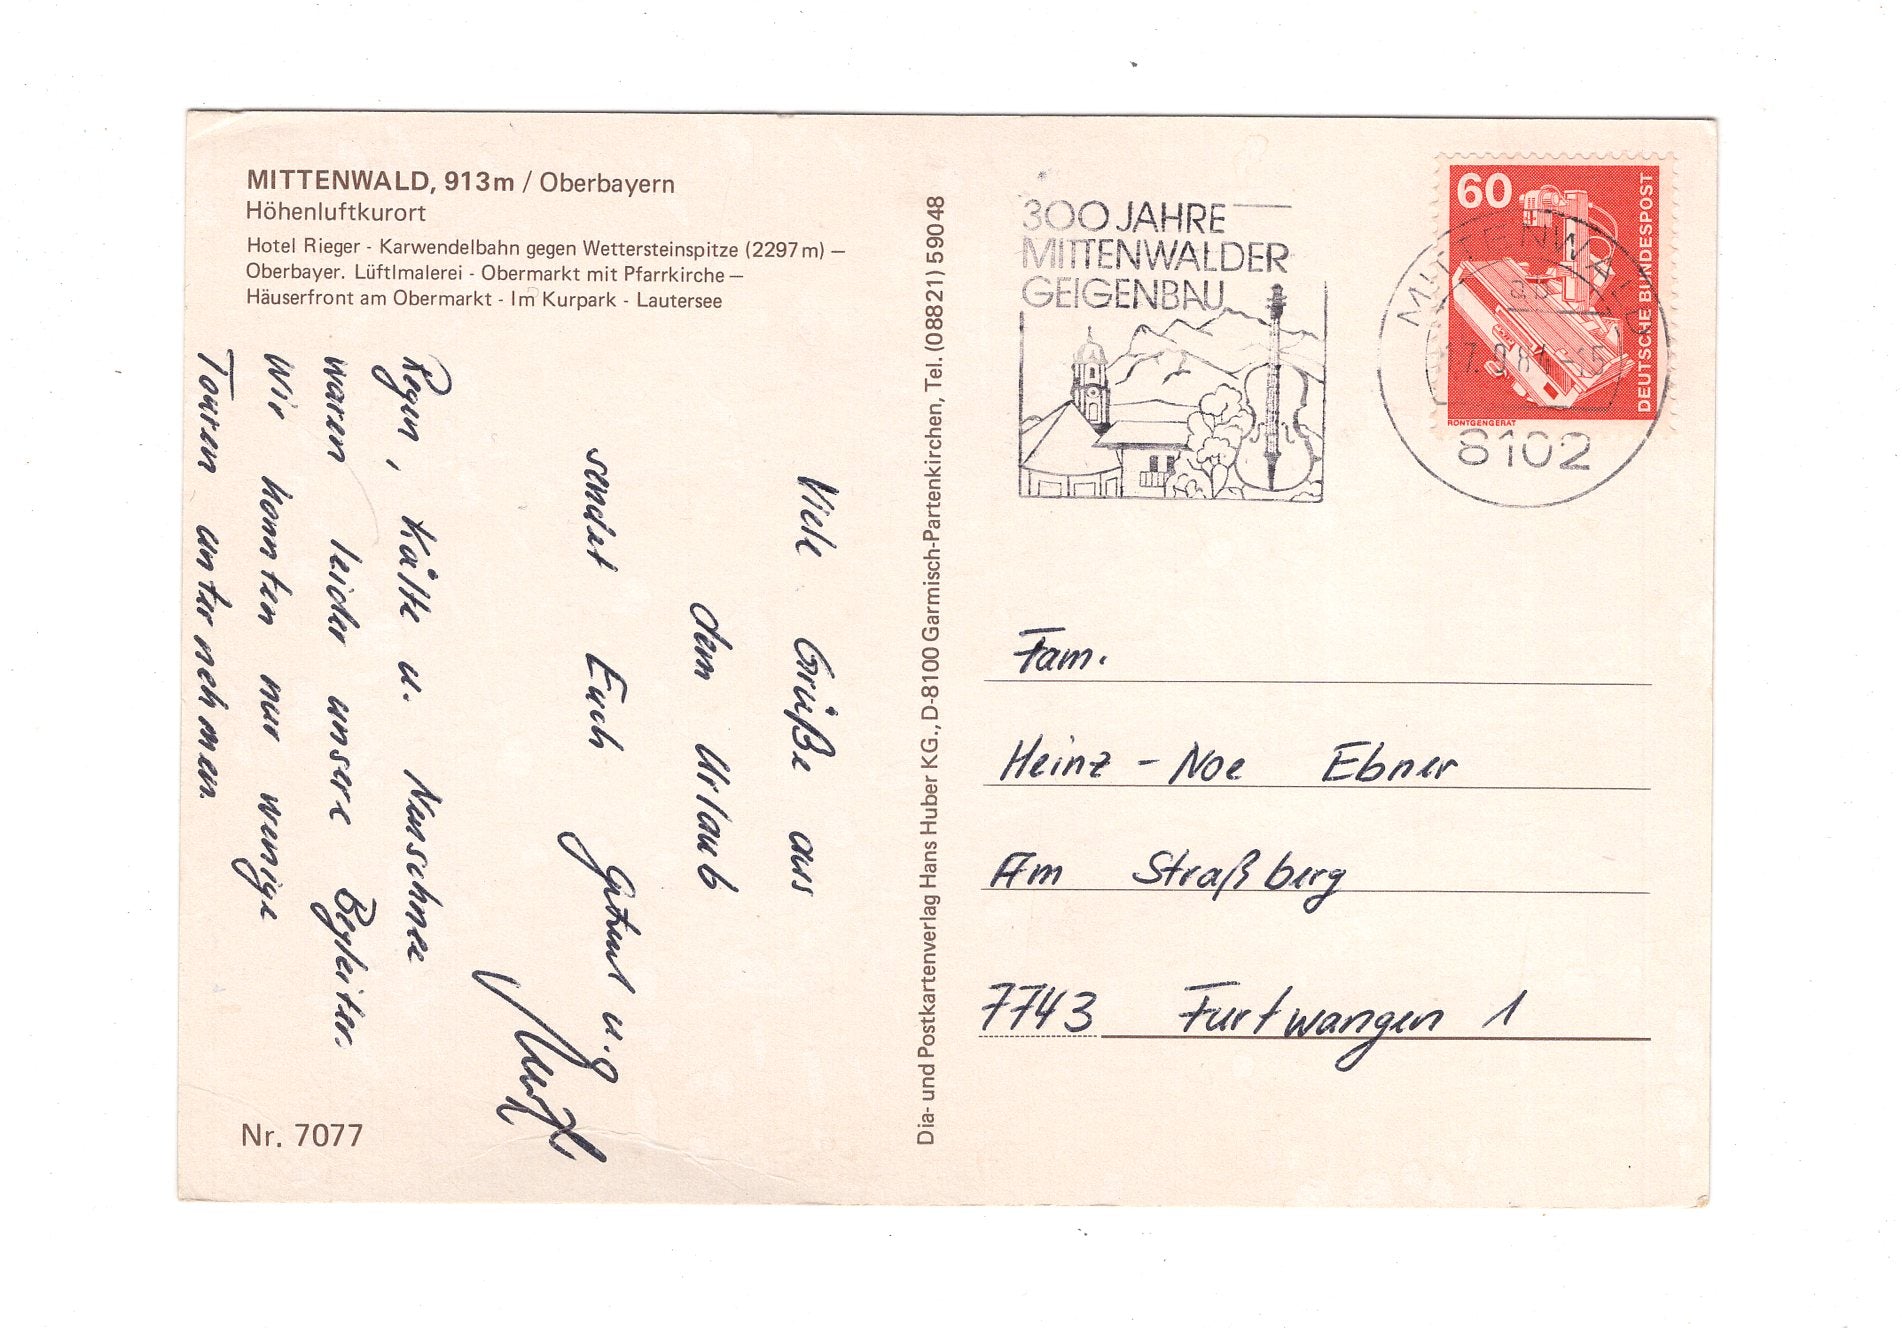 MITTENWALD, 913m / Oberbayern
Höhenluftkurort
Hotel Rieger - Karwendelbahn gegen Wettersteinspitze (2297m) –
Oberbayer. Lüftlmalerei - Obermarkt mit Pfarrkirche –
Häuserfront am Obermarkt - Im Kurpark - Lautersee
Viele Grüße aus
dem Urlaub
sendet Euch
u.
Regen, Kälte u. Neuschnee
waren leider unsere Begleiter.
Wir konnten nur wenige
Touren unternehmen.
Nr. 7077
Dia- und Postkartenverlag Hans Huber KG., D-8100 Garmisch-Partenkirchen, Tel. (08821) 59048
300 JAHRE
MITTENWALDER
GEIGENBAU
60
DEUTSCHE BUNDESPOST
RÖNTGENGERÄT
MITTENWALD
8102
Fam.
Heinz - Noe Ebner
Am Straßberg
7743 Furtwangen 1